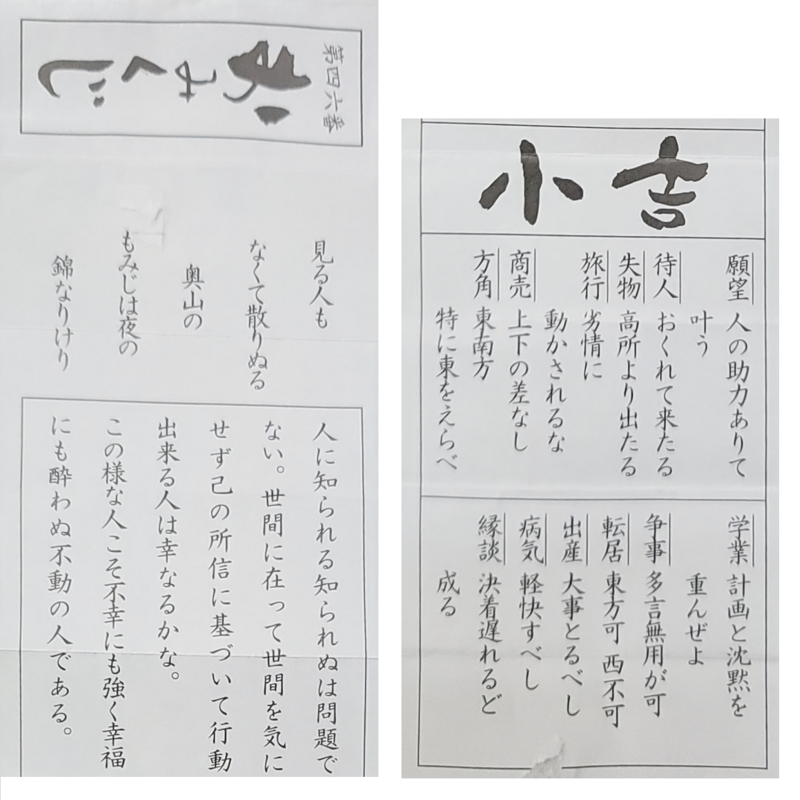 第四六番
おみくじ
見る人も
なくて散りぬる
奥山の
もみじは夜の
錦なりけり
人に知られる知られぬは問題で
ない。世間に在って世間を気に
せず己の所信に基づいて行動
出来る人は幸なるかな。
この様な人こそ不幸にも強く幸福
にも酔わぬ不動の人である。
小吉
願望 人の助力ありて
叶う
待人 おくれて来たる
失物 高所より出たる
旅行 劣情に
動かされるな
商売 上下の差なし
方角 東南方
特に東をえらべ
学業 計画と沈黙を
重んぜよ
争事 多言無用が可
転居 東方可 西不可
出産 大事とるべし
病気 軽快すべし
縁談 決着遅れるど
成る